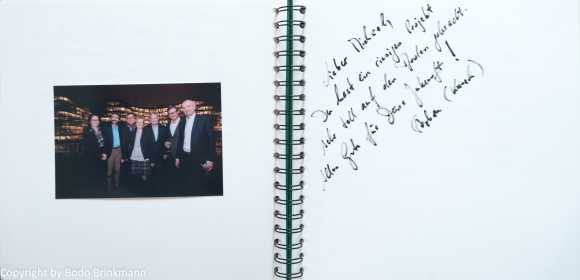 Lieber Michael,
Du hast ein riesiges Projekt
sehr toll auf den Boden gebracht.
Alles Gute für Deine Zukunft!
Copyright by Bodo Brinkmann